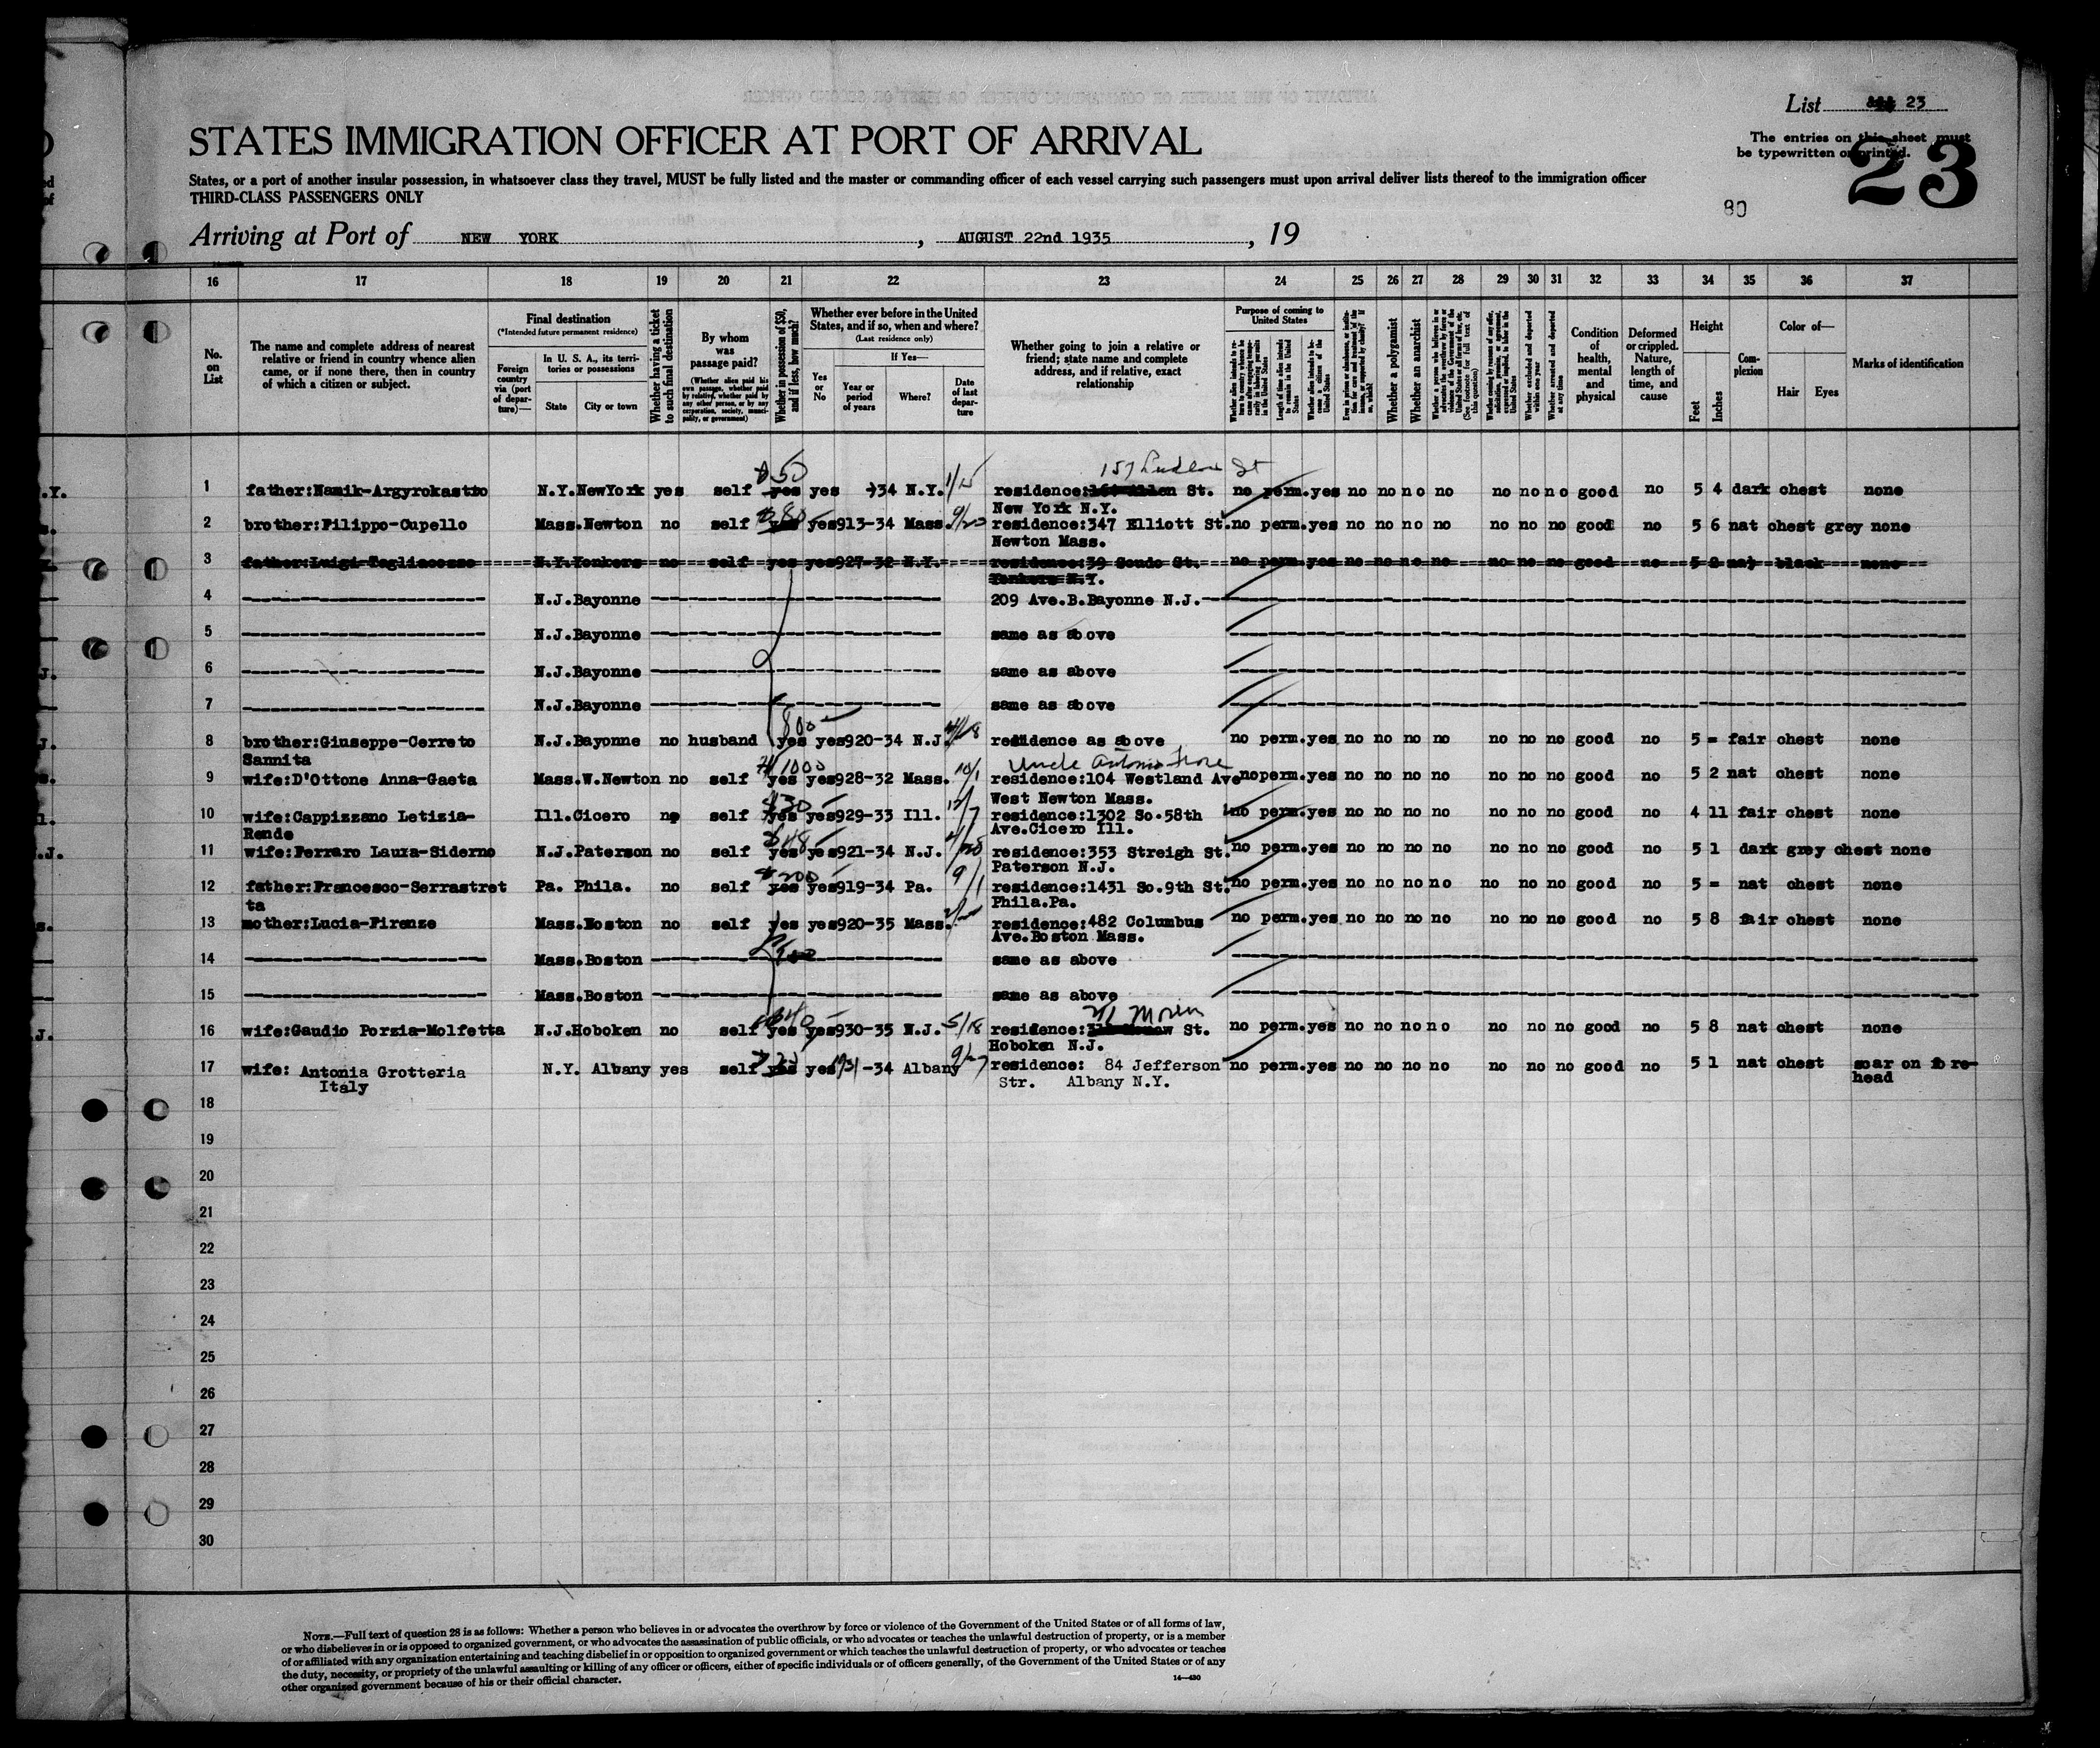 List 23
The entries on this sheet must
be typewritten or printed.
23
80
STATES IMMIGRATION OFFICER AT PORT OF ARRIVAL
States, or a port of another insular possession, in whatsoever class they travel, MUST be fully listed and the master or commanding officer of each vessel carrying such passengers must upon arrival deliver lists thereof to the immigration officer
THIRD-CLASS PASSENGERS ONLY
Arriving at Port of NEW YORK , AUGUST 22nd 1935 , 19
16 17 18 19 20 21 22 23 24 25 26 27 28 29 30 31 32 33 34 35 36 37
No. on List
The name and complete address of nearest relative or friend in country whence alien came, or if none there, then in country of which a citizen or subject.
Final destination
(*Intended future permanent residence)
Foreign country via (port of departure)—
In U. S. A., its territories or possessions
State City or town
Whether having a ticket to such final destination
By whom was passage paid?
(Whether alien paid his own passage, whether paid by relative, whether paid by any other person, or by any corporation, society, municipality, or government)
Whether in possession of $50, and if less, how much?
Whether ever before in the United States, and if so, when and where?
(Last residence only)
Yes or No
If Yes—
Year or period of years
Where?
Date of last departure
Whether going to join a relative or friend; state name and complete address, and if relative, exact relationship
Purpose of coming to United States
Whether a polygamist
Whether an anarchist
Condition of health, mental and physical
Deformed or crippled. Nature, length of time, and cause
Height
Feet Inches
Complexion
Color of—
Hair Eyes
Marks of identification
$50 1/15 157 Ludlow St
1 father:Namik-Argyrokastro N.Y.NewYork yes self yes yes 34 N.Y. residence:164 Allen St. no perm.yes no no no no no no no good no 5 4 dark chest none
New York N.Y.
2 brother:Filippo-Cupello Mass.Newton no self $80 yes yes913-34 Mass. residence:347 Elliott St.no perm.yes no no no no no no no good no 5 6 nat chest grey none
Newton Mass.
3 father:Luigi-Tagliacozzo N.Y.Yonkers no self yes yes927-32 N.Y. residence:39 Scudo St. no perm.yes no no no no no no no good no 5 2 nat black none
Yonkers N.Y.
4 N.J.Bayonne 209 Ave.B.Bayonne N.J.
5 N.J.Bayonne same as above
6 N.J.Bayonne same as above
7 N.J.Bayonne same as above
800
8 brother:Giuseppe-Cerreto N.J.Bayonne no husband yes yes920-34 N.J. 4/18 residence as above no perm.yes no no no no no no no good no 5 = fair chest none
Sannita
$1000 10/1 Uncle Antonio Fiore
9 wife:D'Ottone Anna-Gaeta Mass.W.Newton no self yes yes928-32 Mass. residence:104 Westland Ave no perm.yes no no no no no no no good no 5 2 nat chest none
West Newton Mass.
$30 12/7
10 wife:Cappizzano Letizia- Ill.Cicero no self yes yes929-33 Ill. residence:1302 So.58th no perm.yes no no no no no no no good no 4 11 fair chest none
Rende Ave.Cicero Ill.
11 wife:Ferraro Laura-Siderno N.J.Paterson no self yes yes921-34 N.J. residence:353 Streigh St. no perm.yes no no no no no no no good no 5 1 dark grey chest none
Paterson N.J.
$200 9/1
12 father:Francesco-Serrastret Pa. Phila. no self yes yes919-34 Pa. residence:1431 So.9th St. no perm.yes no no no no no no no good no 5 = nat chest none
ta Phila.Pa.
13 mother:Lucia-Firenze Mass.Boston no self yes yes920-35 Mass. residence:482 Columbus no perm.yes no no no no no no no good no 5 8 fair chest none
Ave.Boston Mass.
14 Mass.Boston same as above
15 Mass.Boston same as above
$40
16 wife:Gaudio Porzia-Molfetta N.J.Hoboken no self yes yes930-35 N.J. 5/18 residence: St. no perm.yes no no no no no no no good no 5 8 nat chest none
Hoboken N.J.
9/27
17 wife: Antonia Grotteria N.Y. Albany yes self yes yes 1931-34 Albany residence: 84 Jefferson no perm.yes no no no no no no no good no 5 1 nat chest scar on fore-
Italy Str. Albany N.Y. head
18
19
20
21
22
23
24
25
26
27
28
29
30
NOTE.—Full text of question 28 is as follows: Whether a person who believes in or advocates the overthrow by force or violence of the Government of the United States or of all forms of law,
or who disbelieves in or is opposed to organized government, or who advocates the assassination of public officials, or who advocates or teaches the unlawful destruction of property, or is a member
of or affiliated with any organization entertaining and teaching disbelief in or opposition to organized government or which teaches the unlawful destruction of property, or who advocates or teaches
the duty, necessity, or propriety of the unlawful assaulting or killing of any officer or officers, either of specific individuals or of officers generally, of the Government of the United States or of any
other organized government because of his or their official character.
14—430